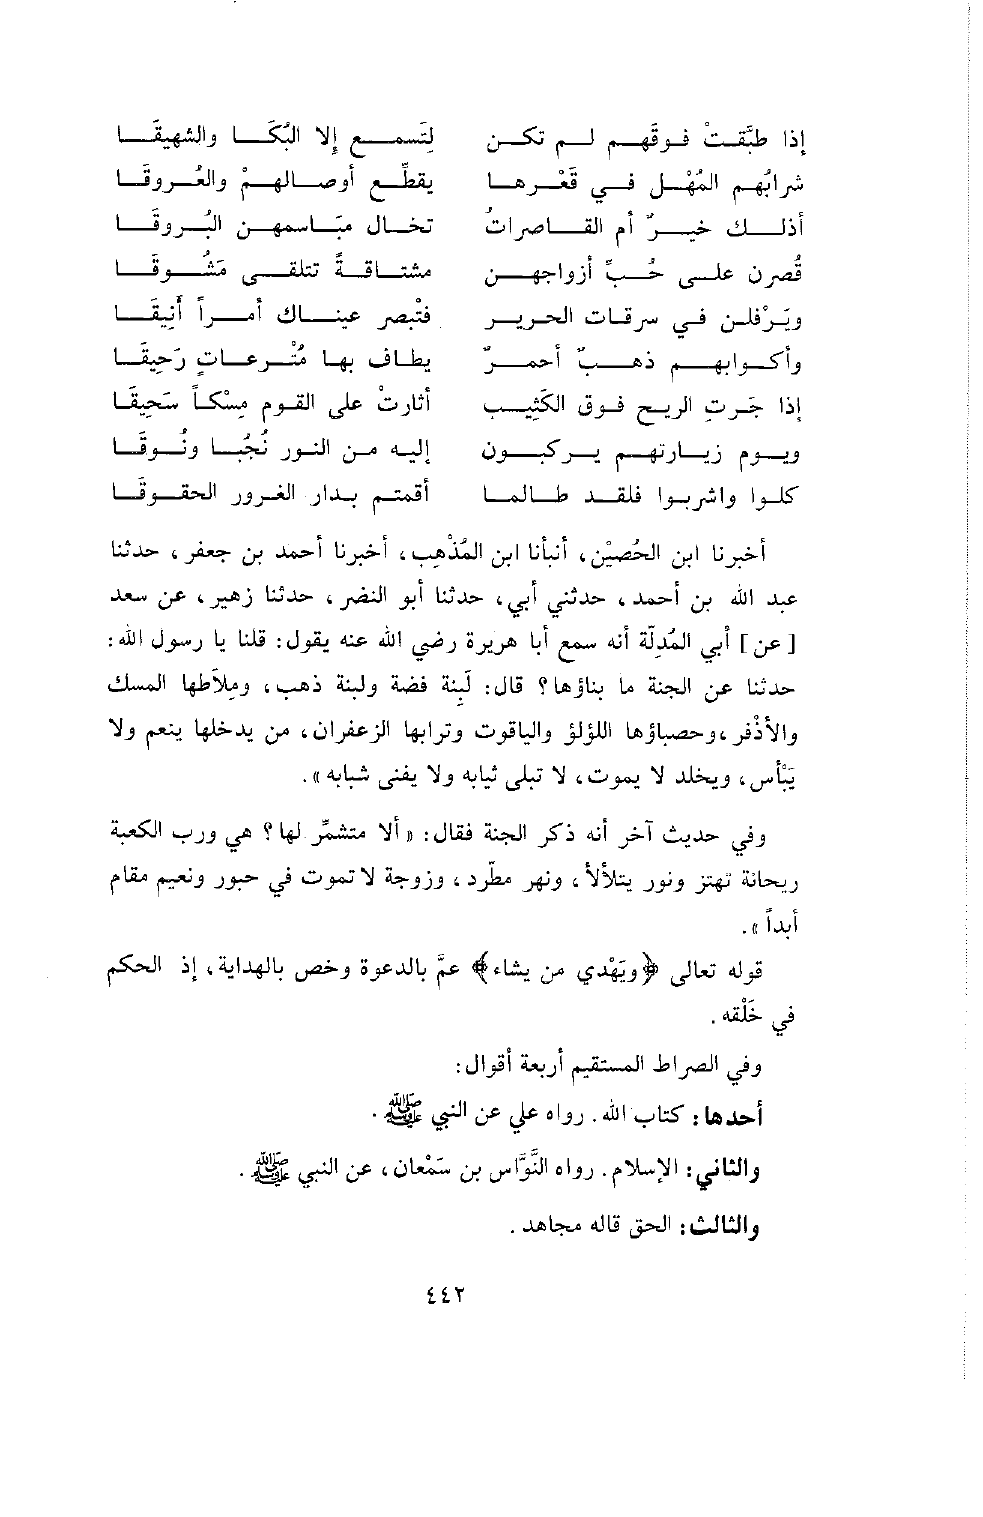 إذا طبَّقتْ فوقَهم لم تكن لِتَسمع إلا البُكَا والشهيقَا
شرابُهم المُهْل في قَعْرها يقطِّع أوصالهمْ والعُروقَا
أذلك خيرٌ أم القاصراتُ تخال مبَاسمهن البُروقَا
قُصرن على حُبِّ أزواجهن مشتاقةً تتلقى مَشُوقَا
ويَرْفلن في سرقات الحرير فتُبصر عيناك أمراً أَنِيقَا
وأكوابهم ذهبٌ أحمرٌ يطاف بها مُتْرعاتٍ رَحِيقَا
إذا جَرتِ الريح فوق الكَثِيب أثارتْ على القوم مِسْكاً سَحِيقَا
ويوم زيارتهم يركبون إليه من النور نُجُبا ونُوقَا
كلوا واشربوا فلقد طالما أقمتم بدار الغرور الحقوقَا
أخبرنا ابن الحُصيْن، أنبأنا ابن المُذْهِب، أخبرنا أحمد بن جعفر، حدثنا
عبد الله بن أحمد، حدثني أبي، حدثنا أبو النضر، حدثنا زهير، عن سعد
[عن] أبي المُدِلّة أنه سمع أبا هريرة رضي الله عنه يقول: قلنا يا رسول الله:
حدثنا عن الجنة ما بناؤها؟ قال: لَبِنة فضة ولبنة ذهب، ومِلاَطها المسك
والأذْفر، وحصباؤها اللؤلؤ والياقوت وترابها الزعفران، من يدخلها ينعم ولا
يَبْأس، ويخلد لا يموت، لا تبلى ثيابه ولا يفنى شبابه».
وفي حديث آخر أنه ذكر الجنة فقال: «ألا متشمِّر لها؟ هي ورب الكعبة
ريحانة تهتز ونور يتلألأ، ونهر مطَّرد، وزوجة لا تموت في حبور ونعيم مقام
أبداً».
قوله تعالى ﴿ويَهْدي من يشاء﴾ عمَّ بالدعوة وخص بالهداية، إذ الحكم
في خَلْقه.
وفي الصراط المستقيم أربعة أقوال:
أحدها: كتاب الله. رواه علي عن النبي ﷺ.
والثاني: الإسلام. رواه النَّوَّاس بن سَمْعان، عن النبي ﷺ.
والثالث: الحق قاله مجاهد.
٤٤٢